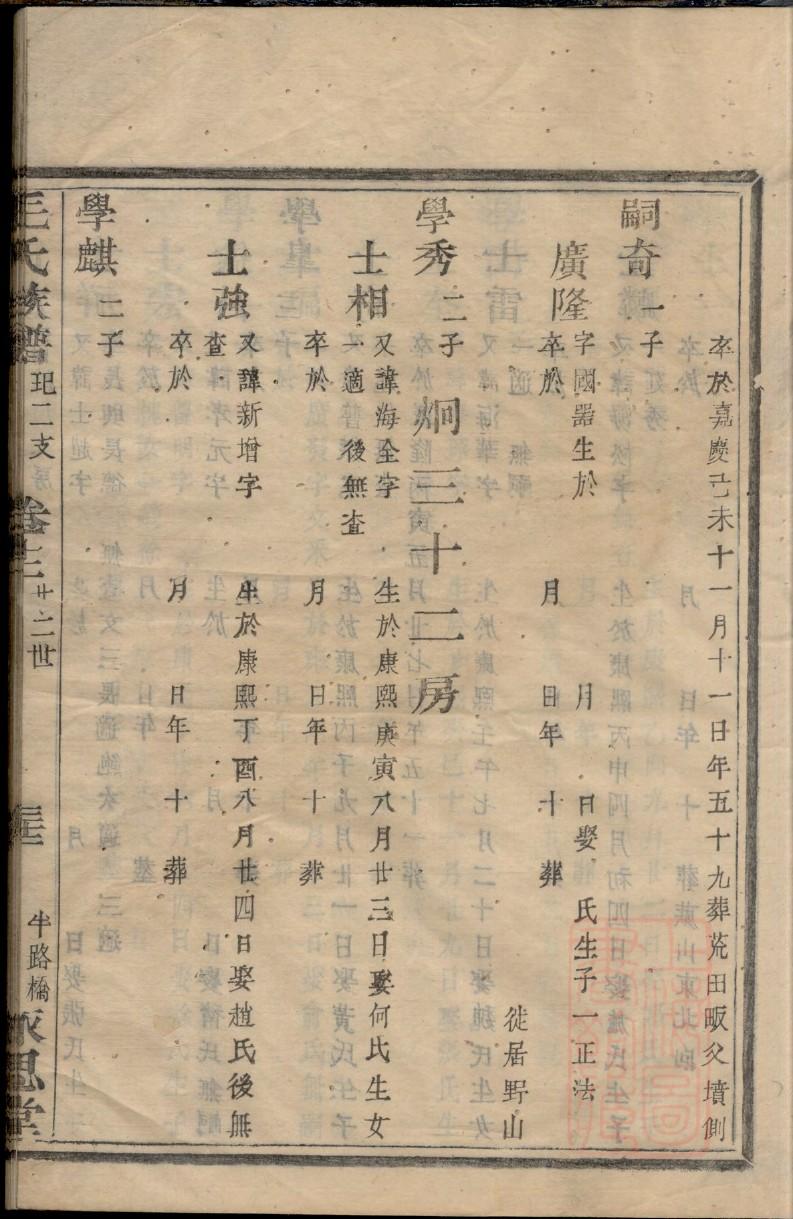 卒於嘉慶己未十一月十一日年五十九葬荒田畈父墳側
嗣奇一子
廣隆字國器生於 月 日娶 氏生子一正法
卒於 月 日年 十 葬
徙居野山
學秀二子 炯三十二房
士相又諱海全字 生於康熙庚寅八月廿三日娶何氏生女
一適 後無查
卒於 月 日年 十 葬
士強又諱新增字 生於康熙丁酉八月廿四日娶趙氏後無
查
卒於 月 日年 十 葬
學麒二子
王氏族譜 玘二支 卷 廿二世 半路橋 永思堂